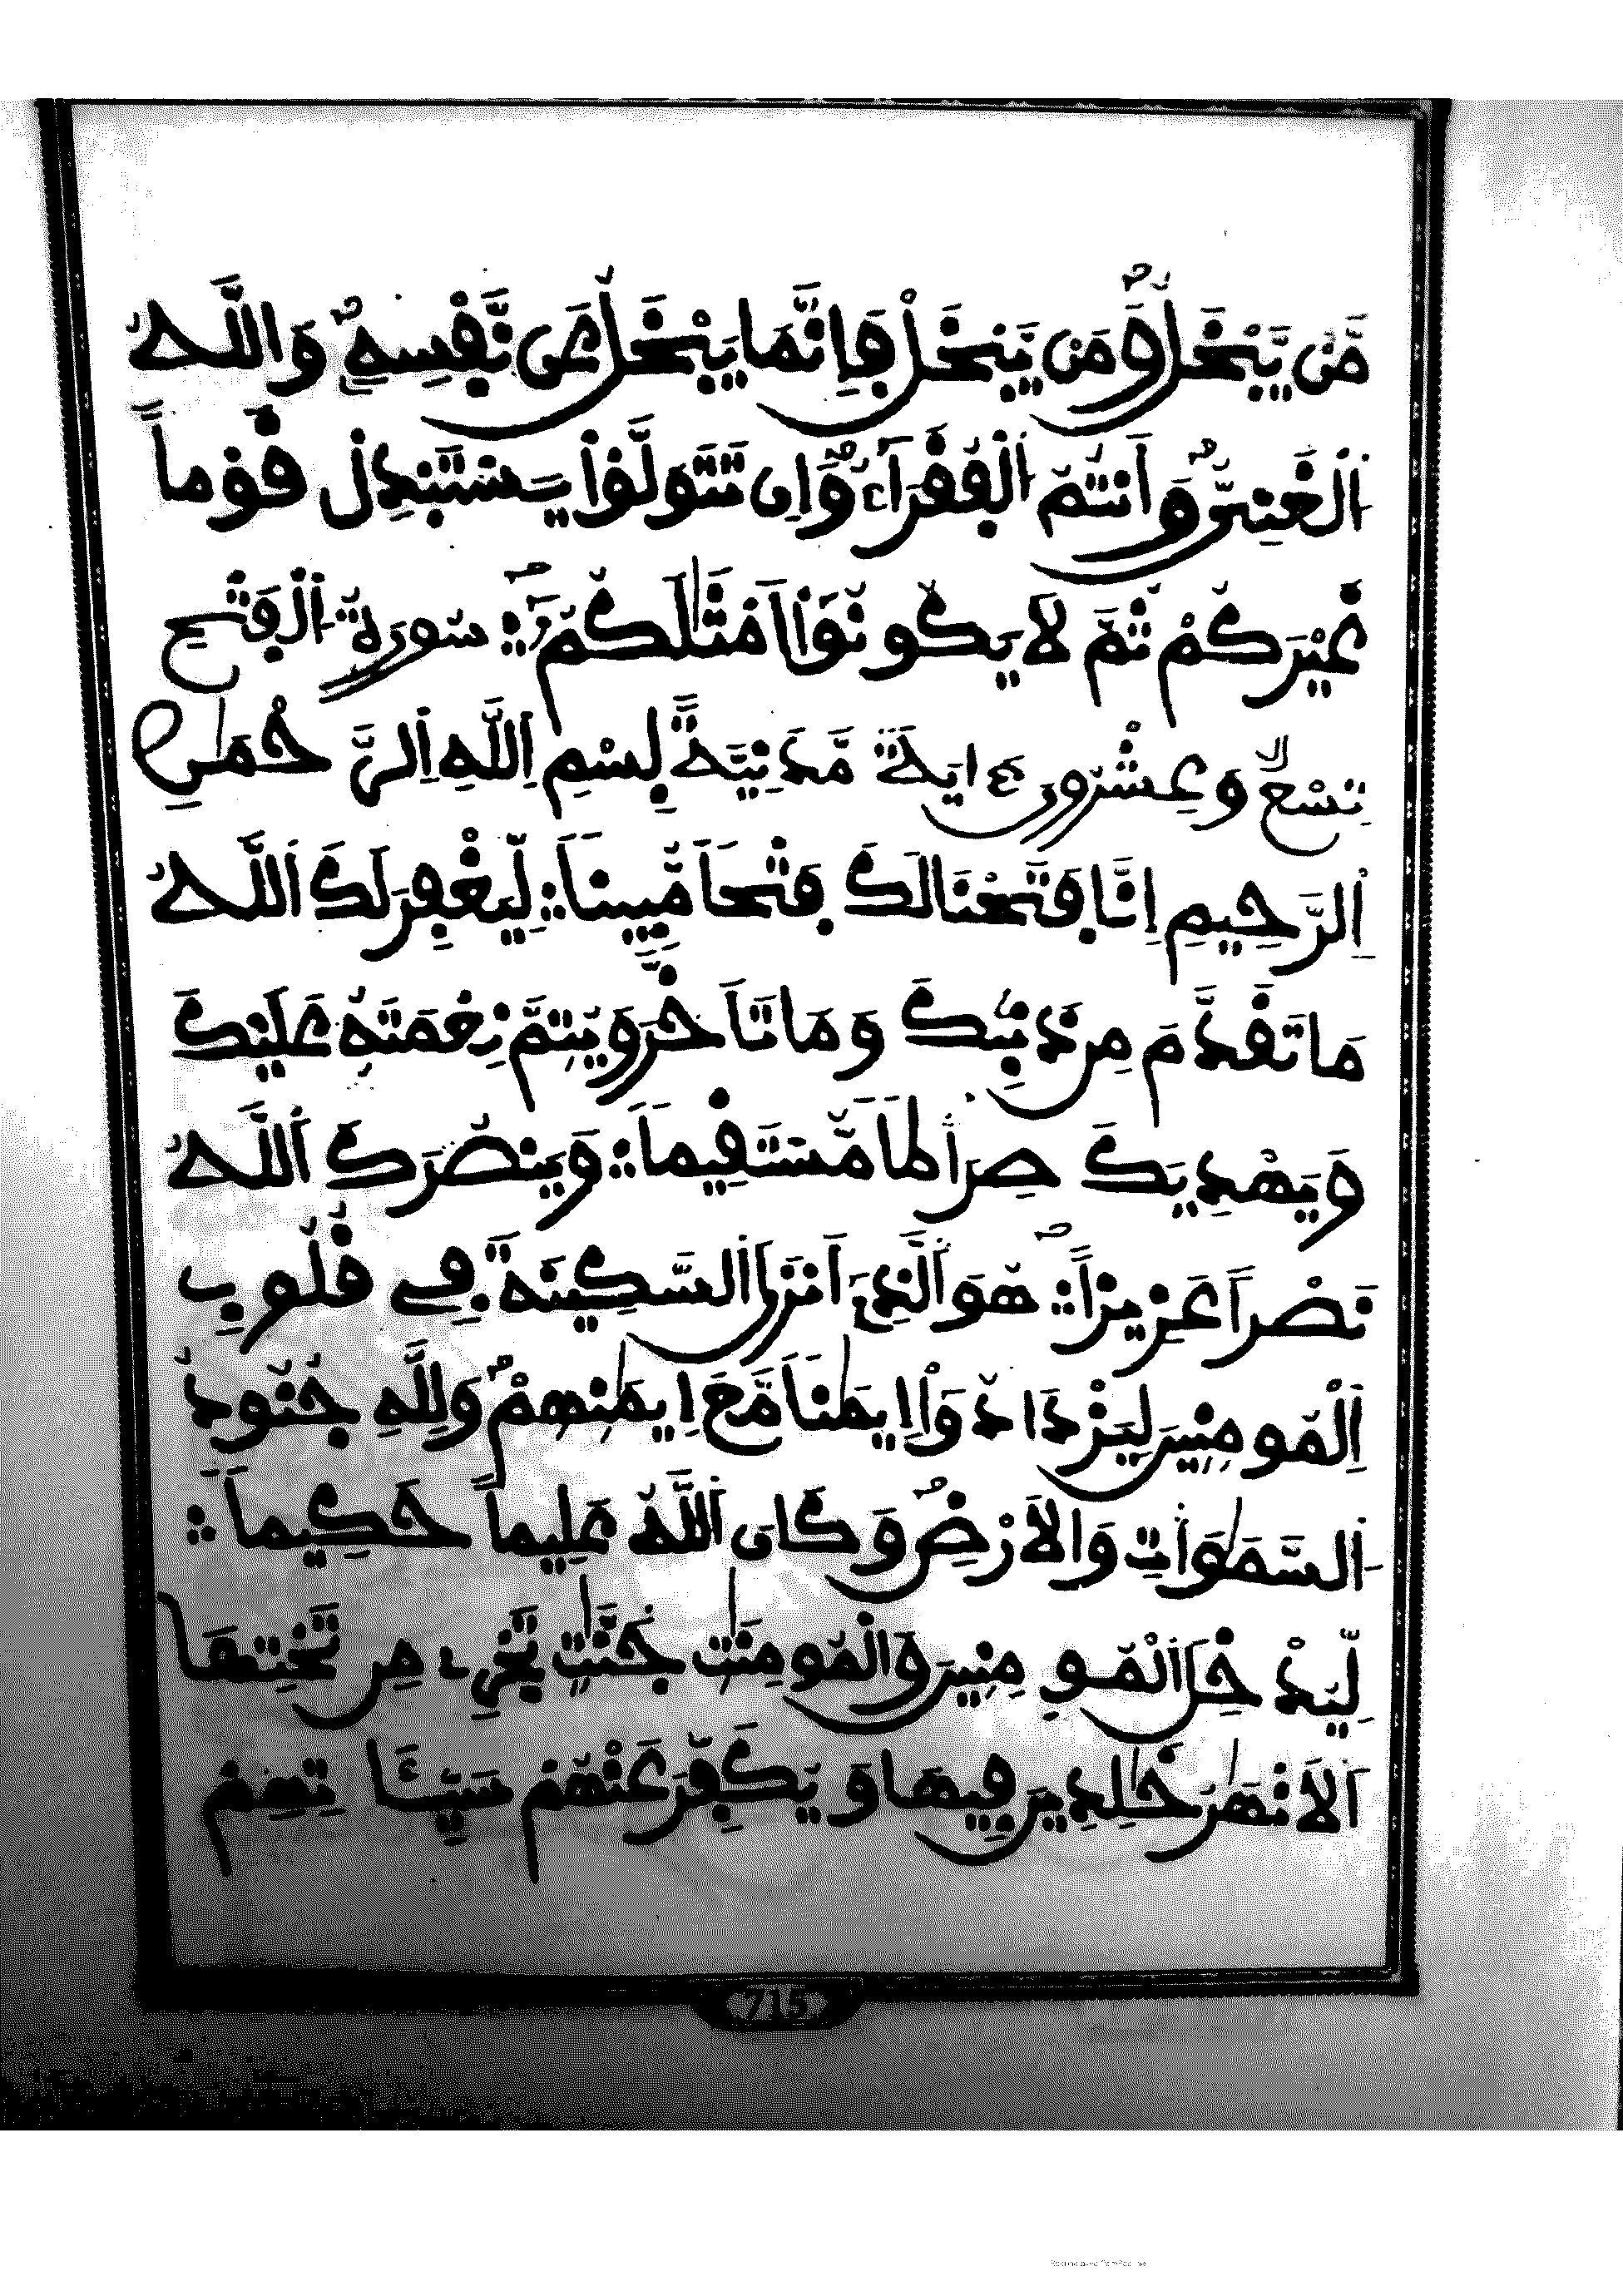 مَّنْ يَّبْخَلُ وَمَنْ يَّبْخَلْ فَإِنَّمَا يَبْخَلُ عَن نَّفْسِهِ وَاللَّهُ
اَلْغَنِيُّ وَأَنتُمُ اَلْفُقَرَآءُ وَإِن تَتَوَلَّوْاْ يَسْتَبْدِلْ قَوْماً
غَيْرَكُمْ ثُمَّ لَا يَكُونُوٓاْ أَمْثَٰلَكُم سُورَةُ اَلْفَتْحِ
تِسْعٌ وَعِشْرُونَ ءَايَةً مَّدَنِيَّةٌ بِسْمِ اِللَّهِ اِلرَّحْمَٰنِ
اِلرَّحِيمِ إِنَّا فَتَحْنَا لَكَ فَتْحاً مُّبِيناً لِّيَغْفِرَ لَكَ اَللَّهُ
مَا تَقَدَّمَ مِن ذَنۢبِكَ وَمَا تَأَخَّرَ وَيُتِمَّ نِعْمَتَهُۥ عَلَيْكَ
وَيَهْدِيَكَ صِرَٰطاً مُّسْتَقِيماً وَيَنصُرَكَ اَللَّهُ
نَصْراً عَزِيزاً هُوَ اَلَّذِىٓ أَنزَلَ اَلسَّكِينَةَ فِے قُلُوبِ
اِلْمُومِنِينَ لِيَزْدَادُوٓاْ إِيمَٰناً مَّعَ إِيمَٰنِهِمْ وَلِلهِ جُنُودُ
اُلسَّمَٰوَٰتِ وَالْأَرْضِ وَكَانَ اَللَّهُ عَلِيماً حَكِيماً
لِّيُدْخِلَ اَلْمُومِنِينَ وَالْمُومِنَٰتِ جَنَّٰتٍ تَجْرِے مِن تَحْتِهَا
اَلْأَنْهَٰرُ خَٰلِدِينَ فِيهَا وَيُكَفِّرَ عَنْهُمْ سَيِّـَٔاتِهِمْ
715